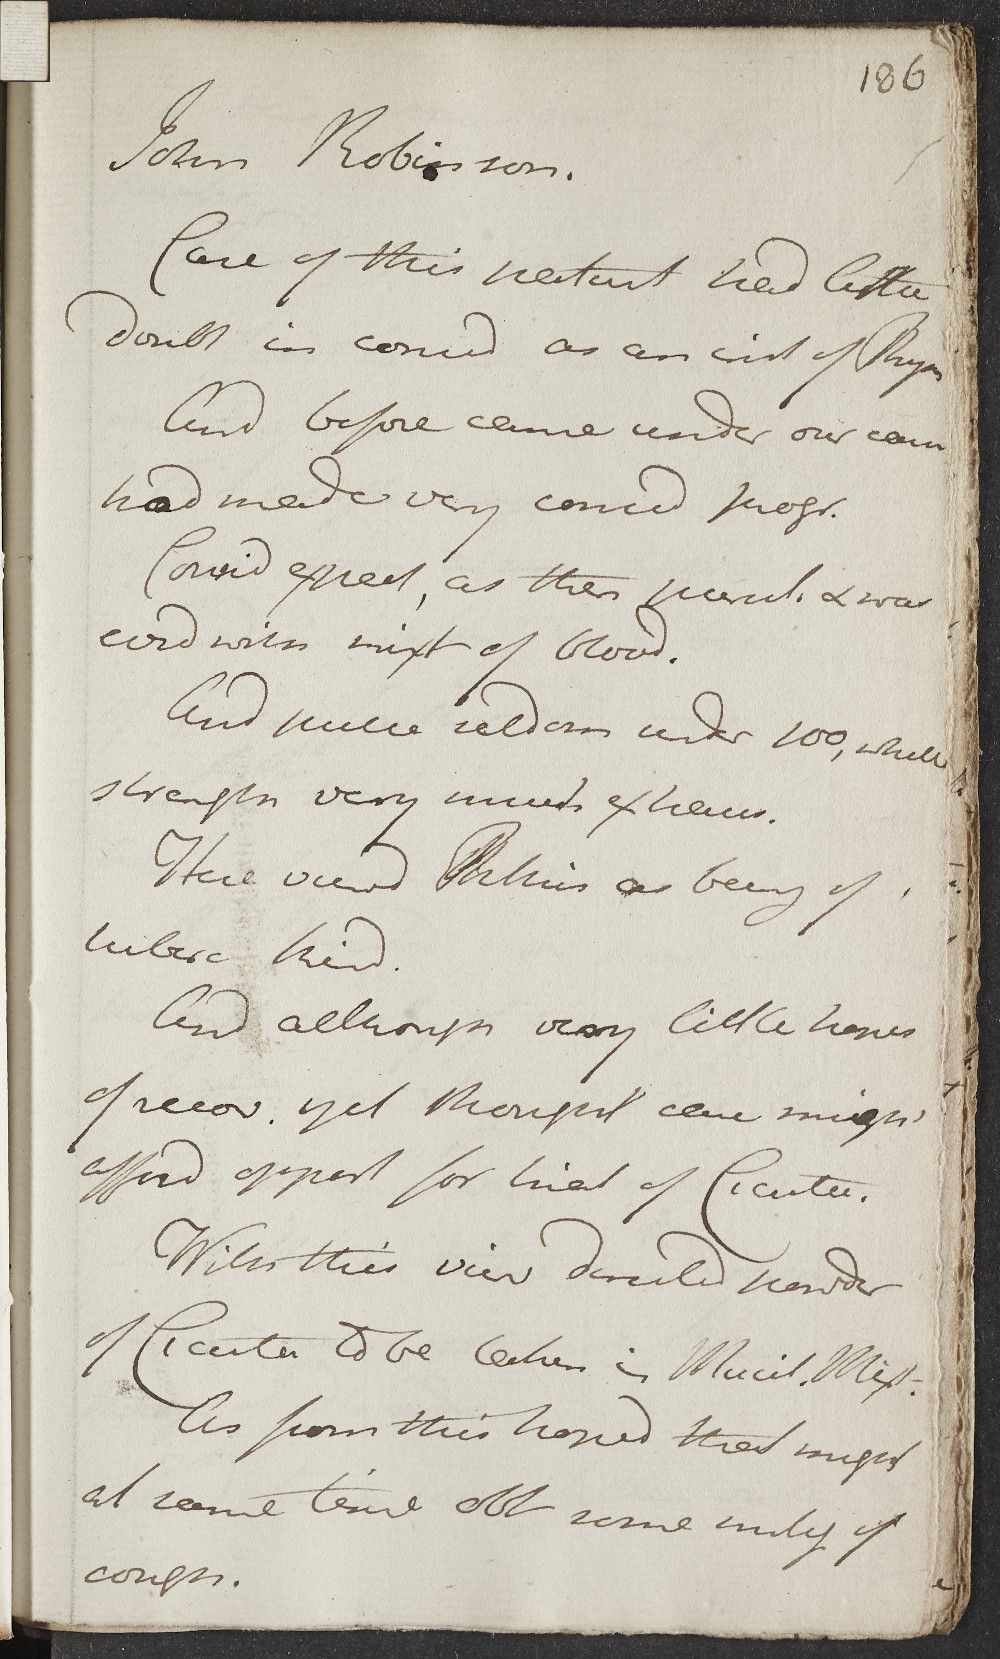 186
John Robinson.
Case of this patient had little
doubt in consid as an inst of Phys
And before came under our care
had made very consid progr.
Consid expect, as then purul. & was
cord with mixt of blood.
And pulse seldom under 100, while
strength very much exhaus.
Here viewd Pthisis as being of
tuberc kind.
And although very little hopes
of recov. yet thought case might
afford opport for trial of Cicuta.
With this view directed powder
of Cicuta to be taken in Mucil. Mixt.
As from this hoped that might
at same time obt some mitig of
cough.